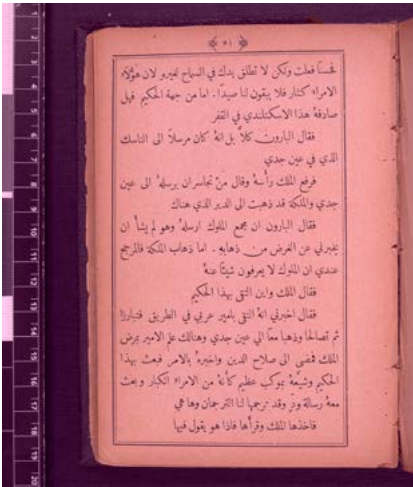 ﴿ ٥١ ﴾
فحسنًا فعلت ولكن لا تطلق يدك في السماح لغيره لان هؤلاء
الامراء كثار فلا يبقون لنا صيدًا. اما من جهة الحكيم فهل
صادفهُ هذا الاسكتلندي في القفر
فقال البارون كلاَّ بل انهُ كان مرسلاً الى الناسك
الذي في عين جدي
فرفع الملك رأسهُ وقال منْ تجاسر ان يرسلهُ الى عين
جدي والملكة قد ذهبت الى الدير الذي هناك
فقال البارون ان مجمع الملوك ارسلهُ وهو لم يشأ ان
يخبرني عن الغرض من ذهابهِ. اما ذهاب الملكة فالمرجح
عندي ان الملوك لا يعرفون شيئًا عنهُ
فقال الملك واين التقى بهذا الحكيم
فقال اخبرني انهُ التقى بامير عربي في الطريق فتبارزا
ثم تصالحا وذهبا معًا الى عين جدي وهنالك علم الامير بمرض
الملك فمضى الى صلاح الدين واخبرهُ بالامر فبعث بهذا
الحكيم وشيَّعهُ بموكب عظيم كأنهُ من الامراء الكبار وبعث
معهُ رسالة ودّ وقد ترجمها لنا الترجمان وها هي
فاخذها الملك وقرأَها فاذا هو يقول فيها